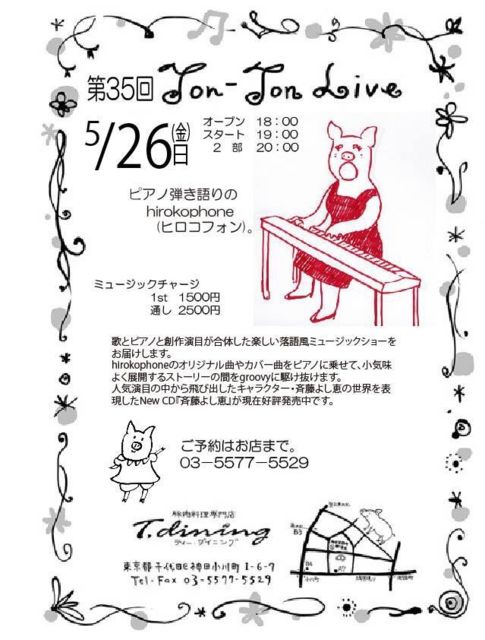 第35回 Ton-Ton Live
5/26(金)日
オープン 18:00
スタート 19:00
2 部 20:00
ピアノ弾き語りの
hirokophone
(ヒロコフォン)。
ミュージックチャージ
1st 1500円
通し 2500円
歌とピアノと創作演目が合体した楽しい落語風ミュージックショーを
お届けします。
hirokophoneのオリジナル曲やカバー曲をピアノに乗せて、小気味
よく展開するストーリーの間をgroovyに駆け抜けます。
人気演目の中から飛び出したキャラクター・斉藤よし恵の世界を表
現したNew CD『斉藤よし恵』が現在好評発売中です。
ご予約はお店まで。
03-5577-5529
豚肉料理専門店
T.dining
ティー・ダイニング
東京都千代田区神田小川町1-6-7
Tel・Fax 03-5577-5529